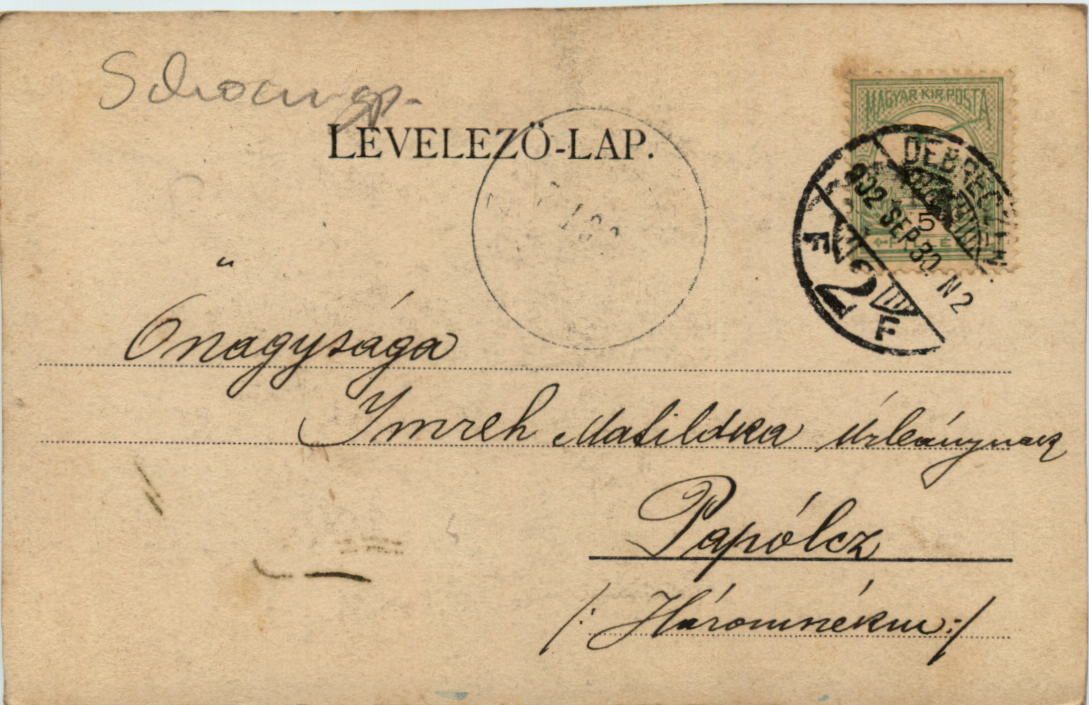 LEVELEZÖ-LAP.
MAGYAR KIR. POSTA
5
DEBRECZEN
902 SEP. 30. N2
F 2 F
Őnagysága
Imreh Matildka úrleánynak
Papólcz
/: Háromszékm :/